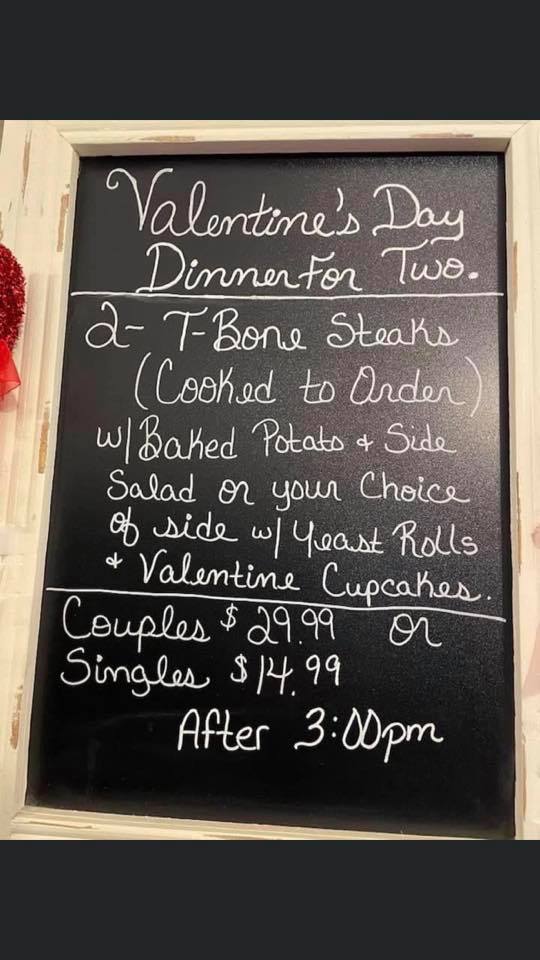 Valentine's Day
Dinner For Two.
2- T-Bone Steaks
(Cooked to Order)
w/ Baked Potato & Side
Salad or your Choice
of side w/ Yeast Rolls
& Valentine Cupcakes.
Couples $29.99 or
Singles $14.99
After 3:00pm